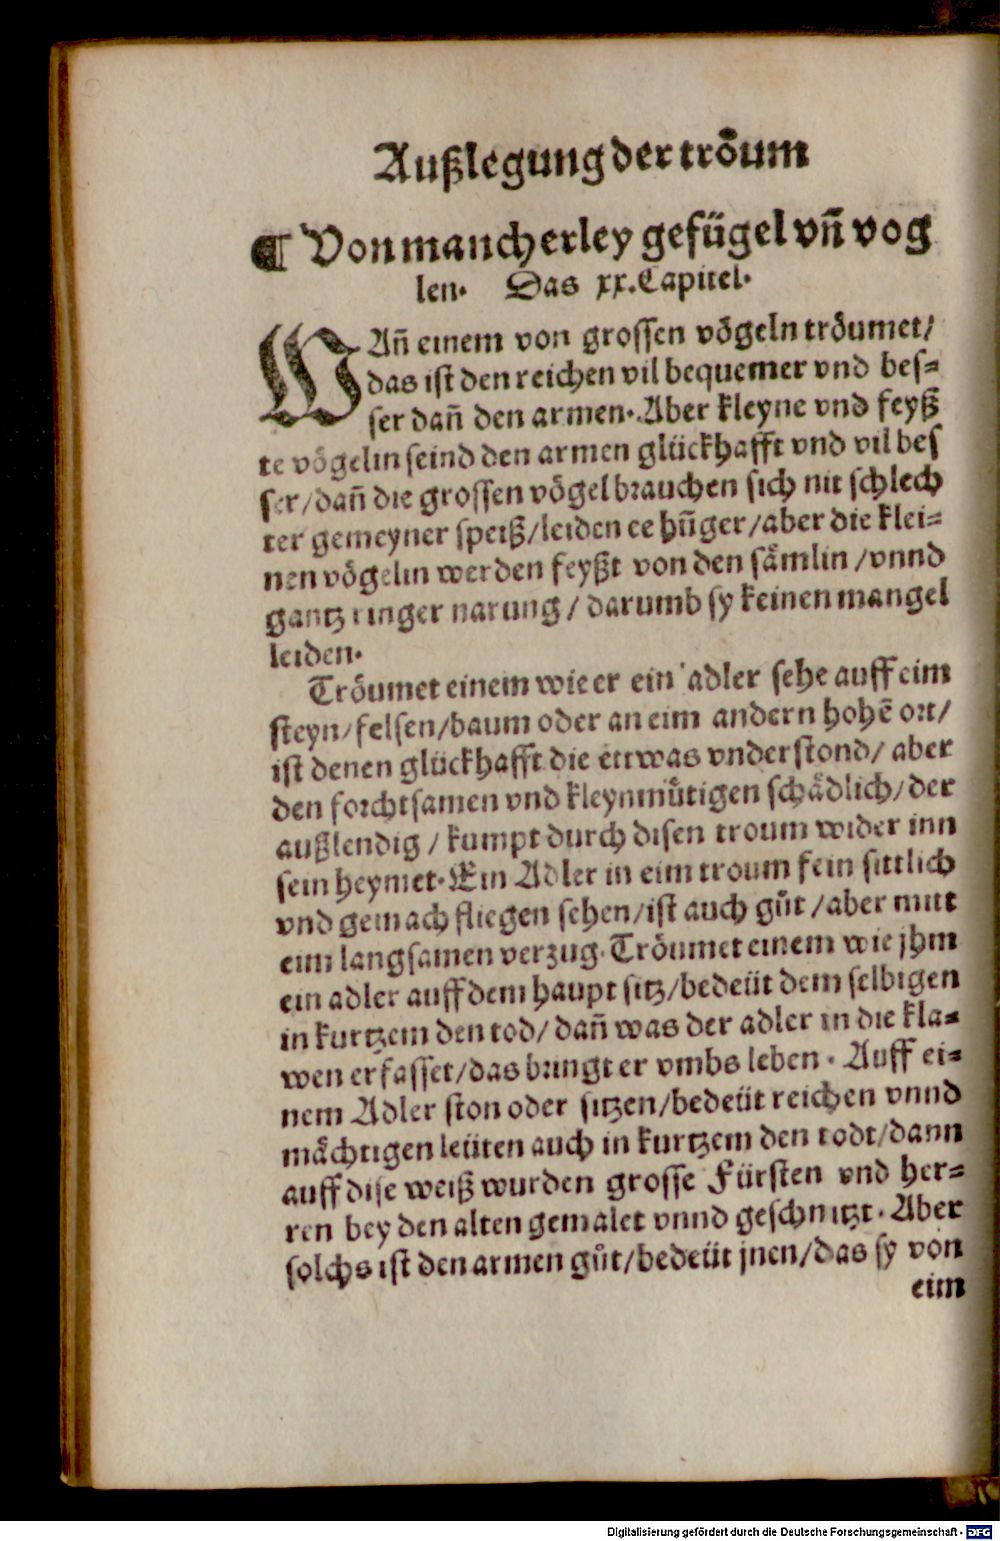 Außlegung der troͤum
¶ Von mancherley gefügel vñ vog
len. Das xx. Capitel.
WAñ einem von grossen voͤgeln troͤumet/
das ist den reichen vil bequemer vnd bes-
ser dañ den armen. Aber kleyne vnd feyß
te voͤgelin seind den armen glückhafft vnd vil bes
ser/dañ die grossen voͤgel brauchen sich nit schlech
ter gemeyner speiß/leiden ee hũger/aber die klei-
nen voͤgelin werden feyßt von den saͤmlin/vnnd
gantz ringer narung/ darumb sy keinen mangel
leiden.
Troͤumet einem wie er ein adler sehe auff eim
steyn/felsen/baum oder an eim andern hohē ort/
ist denen glückhafft die ettwas vnderstond/ aber
den forchtsamen vnd kleynmuͤtigen schaͤdlich/der
außlendig/ kumpt durch disen troum wider inn
sein heymet. Ein Adler in eim troum fein sittlich
vnd gemach fliegen sehen/ist auch guͦt/aber mitt
eim langsamen verzug. Troͤumet einem wie jhm
ein adler auff dem haupt sitz/bedeüt dem selbigen
in kurtzem den tod/ dañ was der adler in die kla-
wen erfasset/das bringt er vmbs leben. Auff ei-
nem Adler ston oder sitzen/bedeüt reichen vnnd
maͤchtigen leüten auch in kurtzem den todt/dann
auff dise weiß wurden grosse Fürsten vnd her-
ren bey den alten gemalet vnnd geschnitzt. Aber
solchs ist den armen guͦt/bedeüt jnen/das sy von
eim
Digitalisierung gefördert durch die Deutsche Forschungsgemeinschaft - DFG